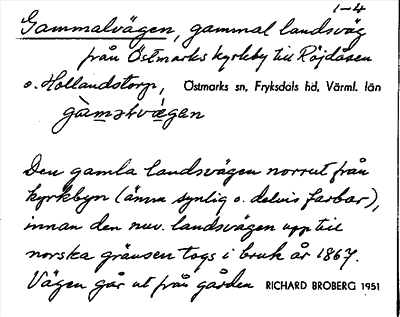 1-4
Gammalvägen, gammal landsväg
från Östmarks kyrkby till Röjdåsen
o. Hollandstorp, Östmarks sn, Fryksdals hd, Värml. län
gàmalvǽgen
Den gamla landsvägen norrut från
kyrkbyn (ännu synlig o. delvis farbar),
innan den nuv. landsvägen upp till
norska gränsen togs i bruk år 1867.
Vägen går ut från gården RICHARD BROBERG 1951